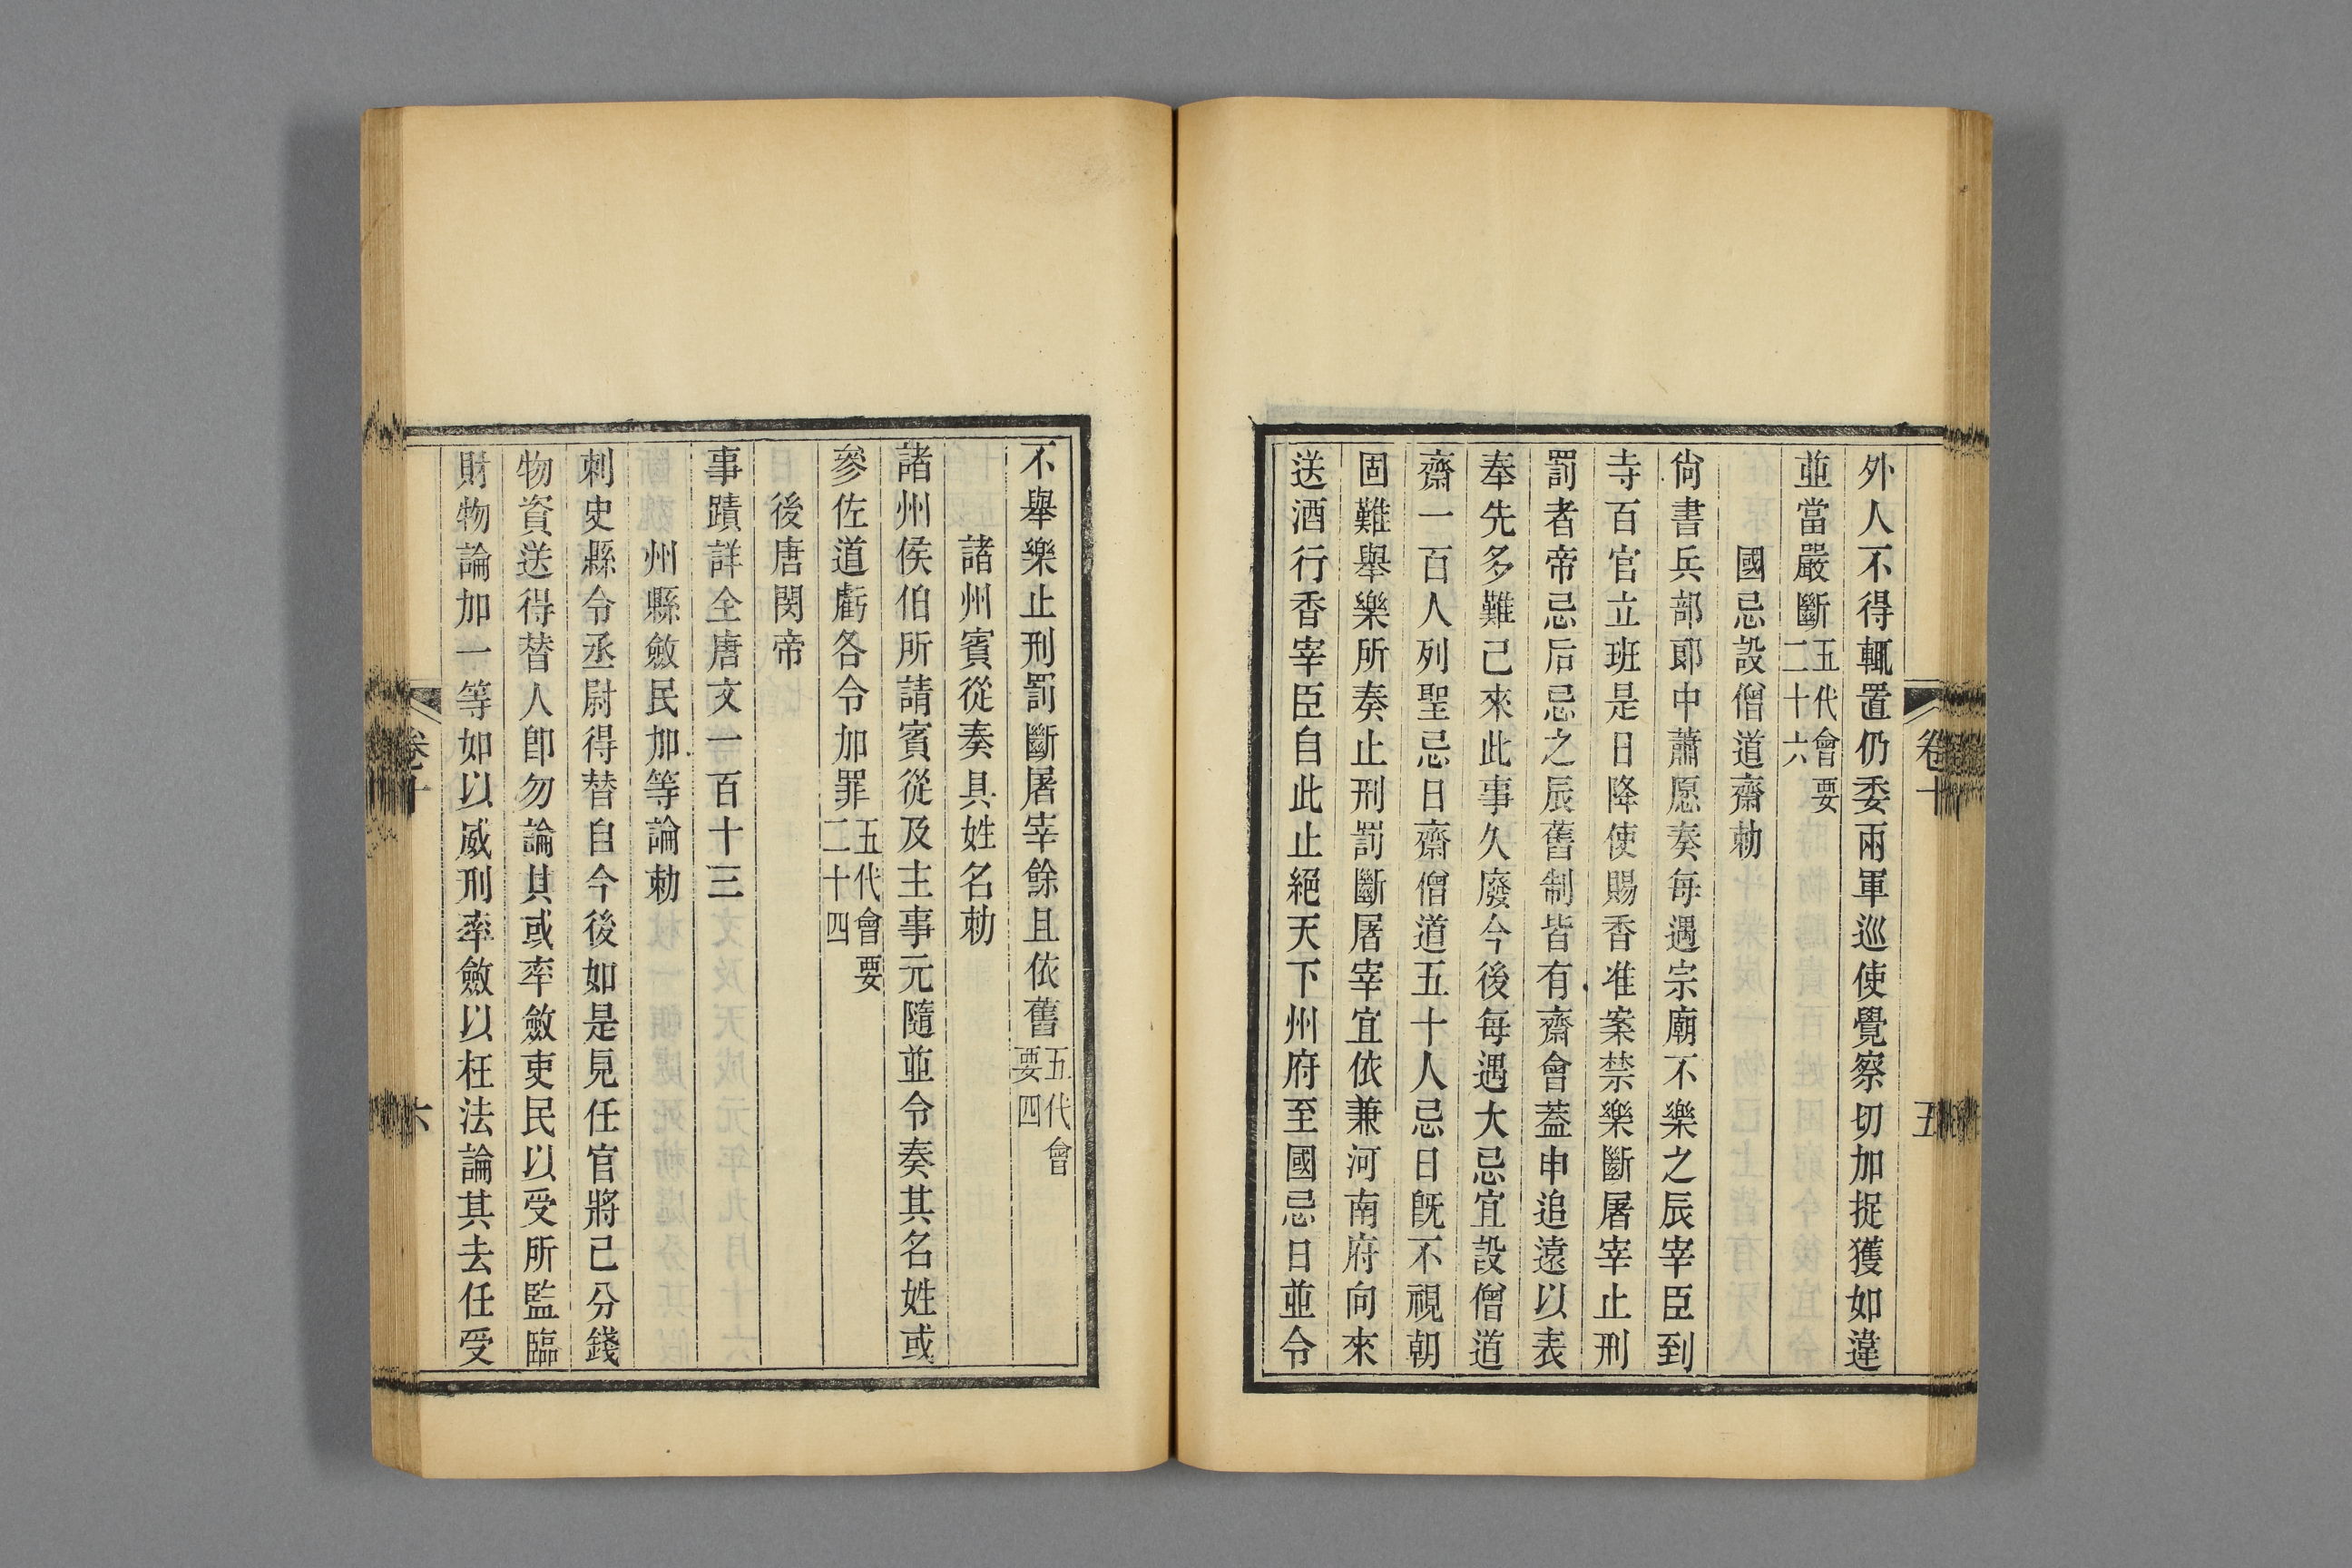 外人不得輒置仍委兩軍巡使覺察切加捉獲如違
並當嚴斷五代會要二十六
國忌設僧道齋勅
尙書兵部郎中蕭愿奏每遇宗廟不樂之辰宰臣到
寺百官立班是日降使賜香准案禁樂斷屠宰止刑
罰者帝忌后忌之辰舊制皆有齋會蓋申追遠以表
奉先多難已來此事久廢今後每遇大忌宜設僧道
齋一百人列聖忌日齋僧道五十人忌日旣不視朝
固難舉樂所奏止刑罰斷屠宰宜依兼河南府向來
送酒行香宰臣自此止絕天下州府至國忌日並令
卷十
五
不舉樂止刑罰斷屠宰餘且依舊五代會要四
諸州賓從奏具姓名勅
諸州侯伯所請賓從及主事元隨並令奏其名姓或
參佐道虧各令加罪五代會要二十四
後唐閔帝
事蹟詳全唐文一百十三
州縣斂民加等論勅
刺史縣令丞尉得替自今後如是見任官將己分錢
物資送得替人卽勿論其或率斂吏民以受所監臨
財物論加一等如以威刑率斂以枉法論其去任受
卷十
六